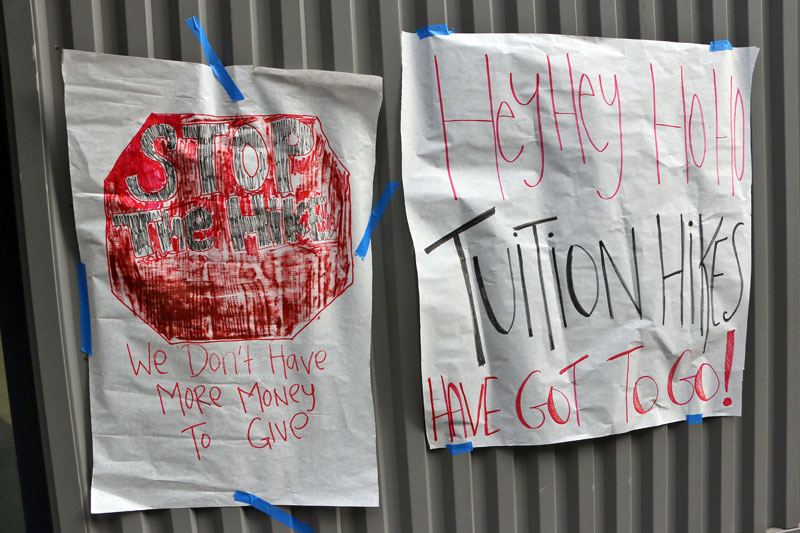 STOP
The Hike
We Don't Have
More Money
To Give
HeyHey HoHo
TUiTiON HiKES
HAVE GOT TO GO!